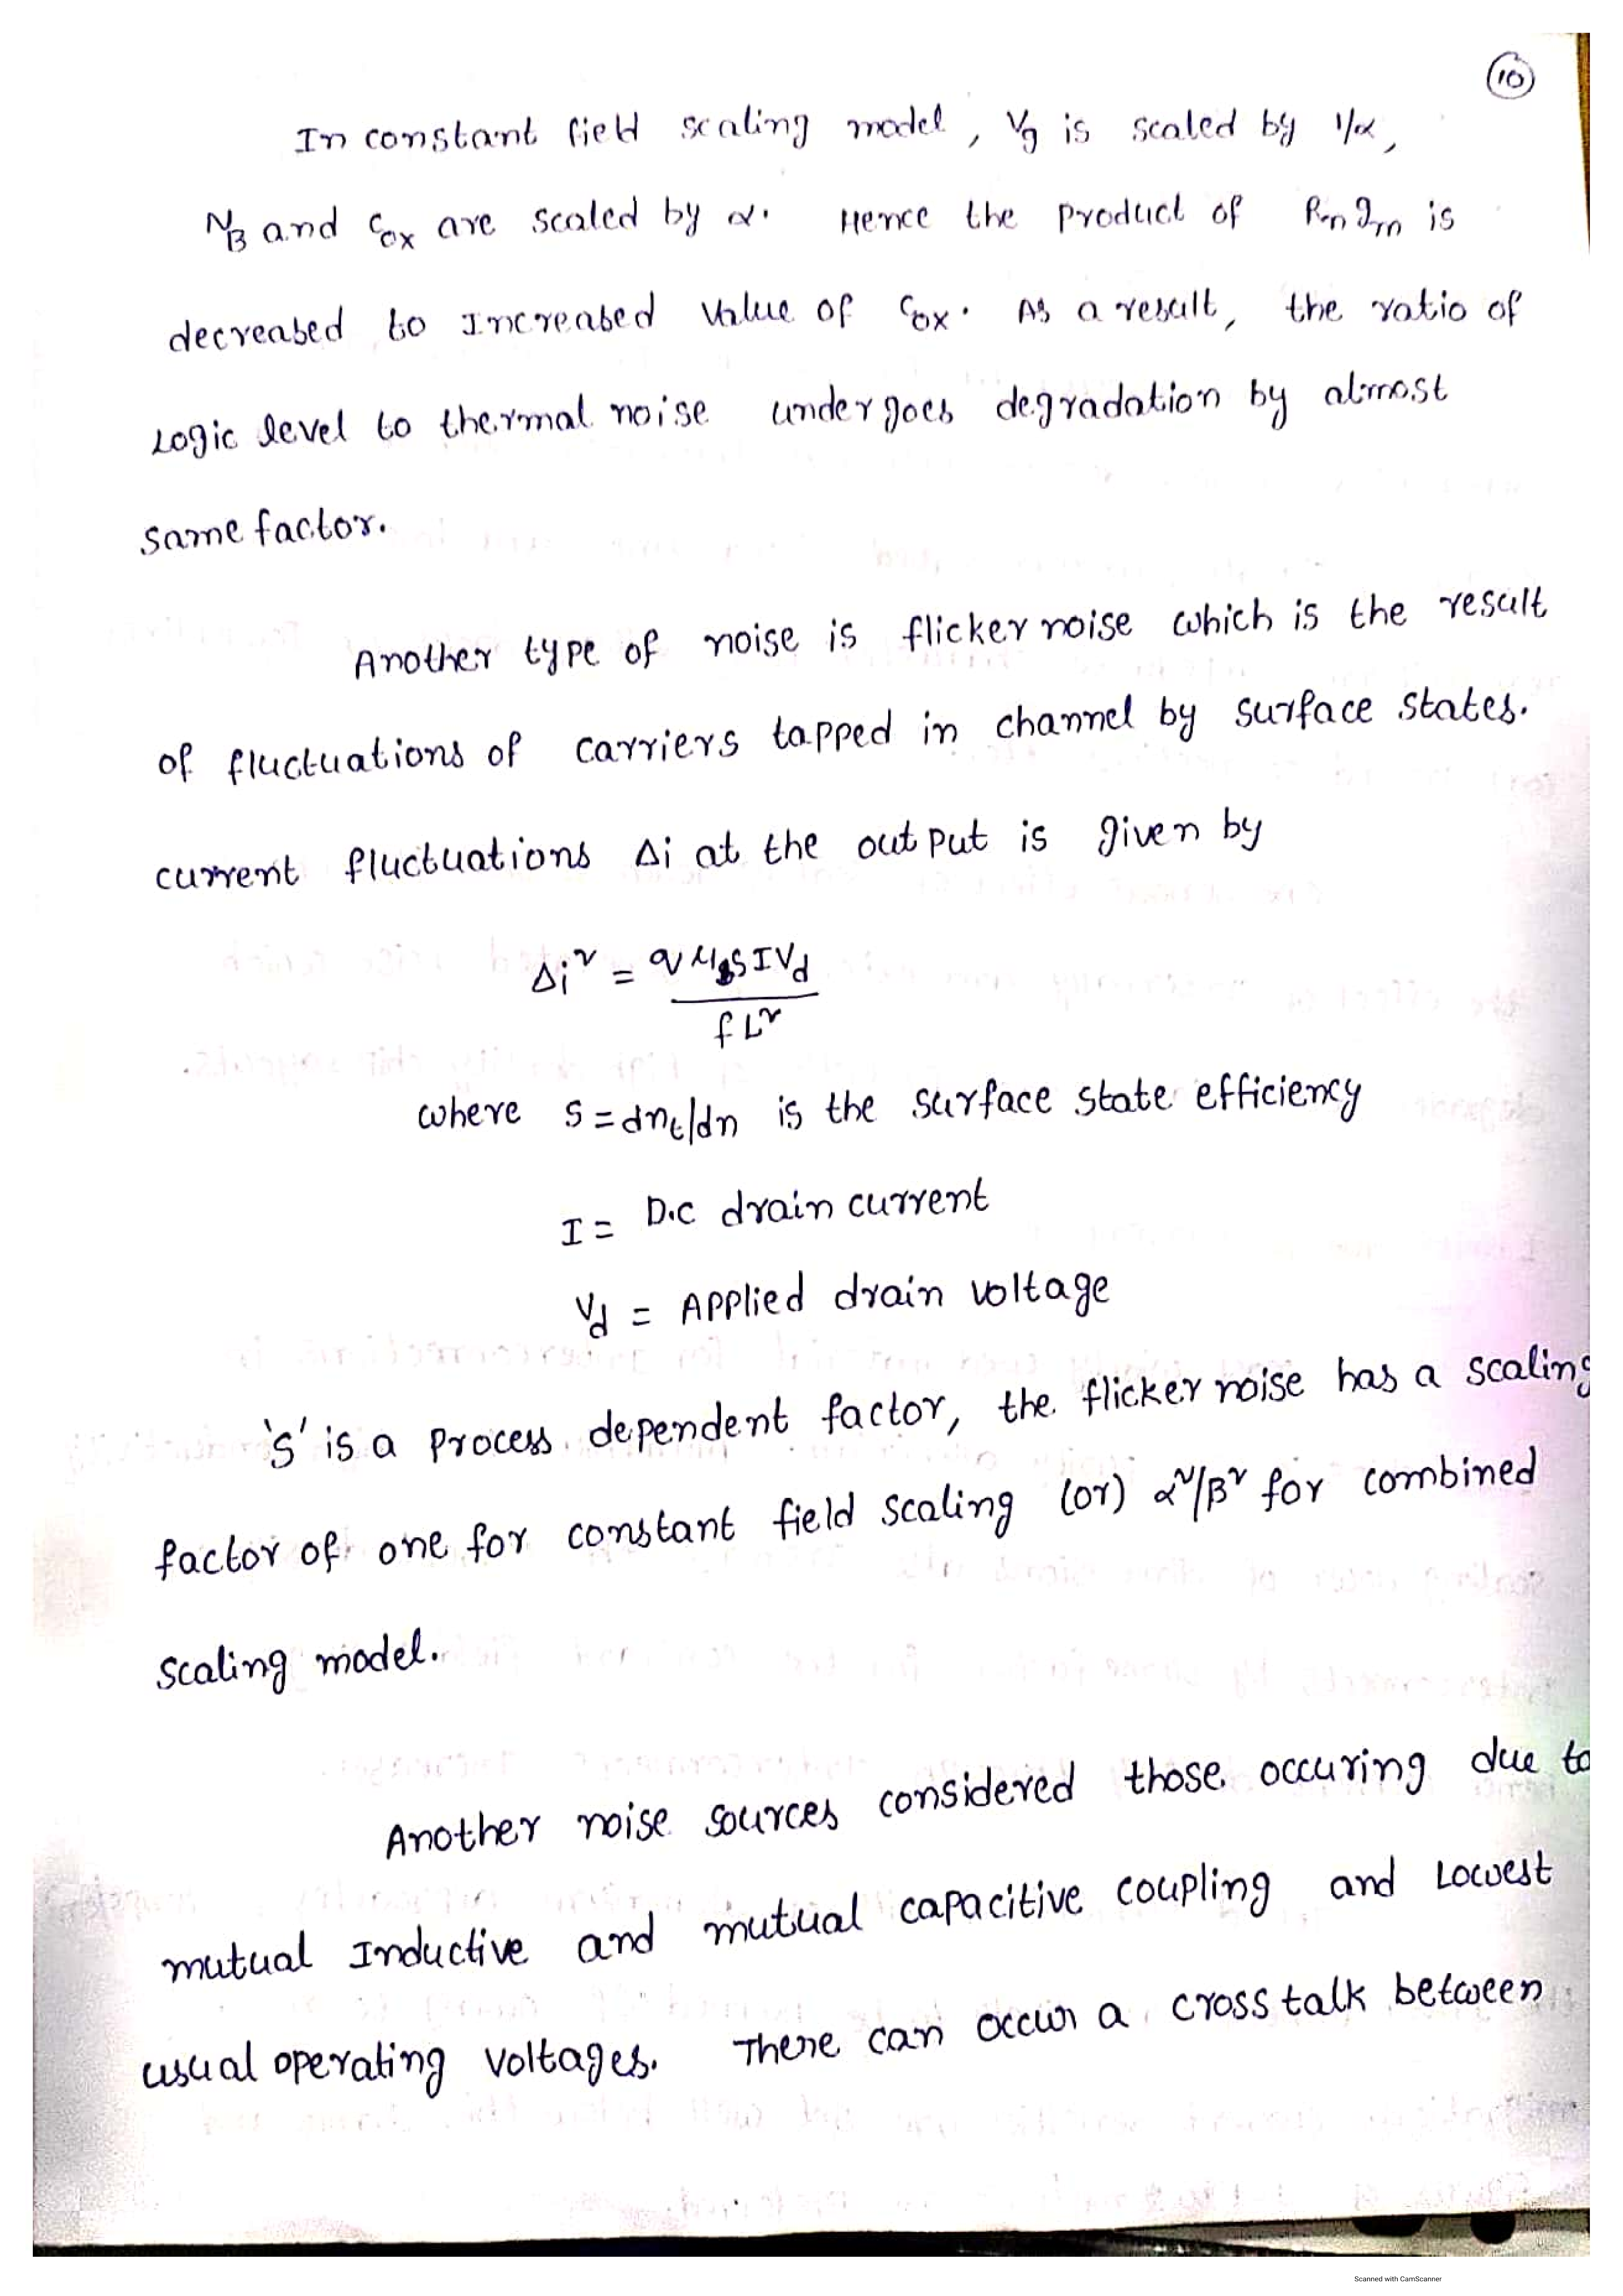 10
In constant field scaling model, Vg is scaled by 1/α,
NB and Cox are scaled by α. Hence the product of Rn gm is
decreased to Increased value of Cox. As a result, the ratio of
Logic level to thermal noise undergoes degradation by almost
same factor.
Another type of noise is flicker noise which is the result
of fluctuations of carriers tapped in channel by surface states.
current fluctuations Δi at the output is given by
Δi² = q μ S I Vd
f L²
where S = dnt/dn is the surface state efficiency
I = D.C drain current
Vd = Applied drain voltage
'S' is a process dependent factor, the flicker noise has a scaling
factor of one for constant field scaling (or) α²/β² for combined
scaling model.
Another noise sources considered those occuring due to
mutual Inductive and mutual capacitive coupling and Lowest
usual operating voltages. There can occur a cross talk between
Scanned with CamScanner